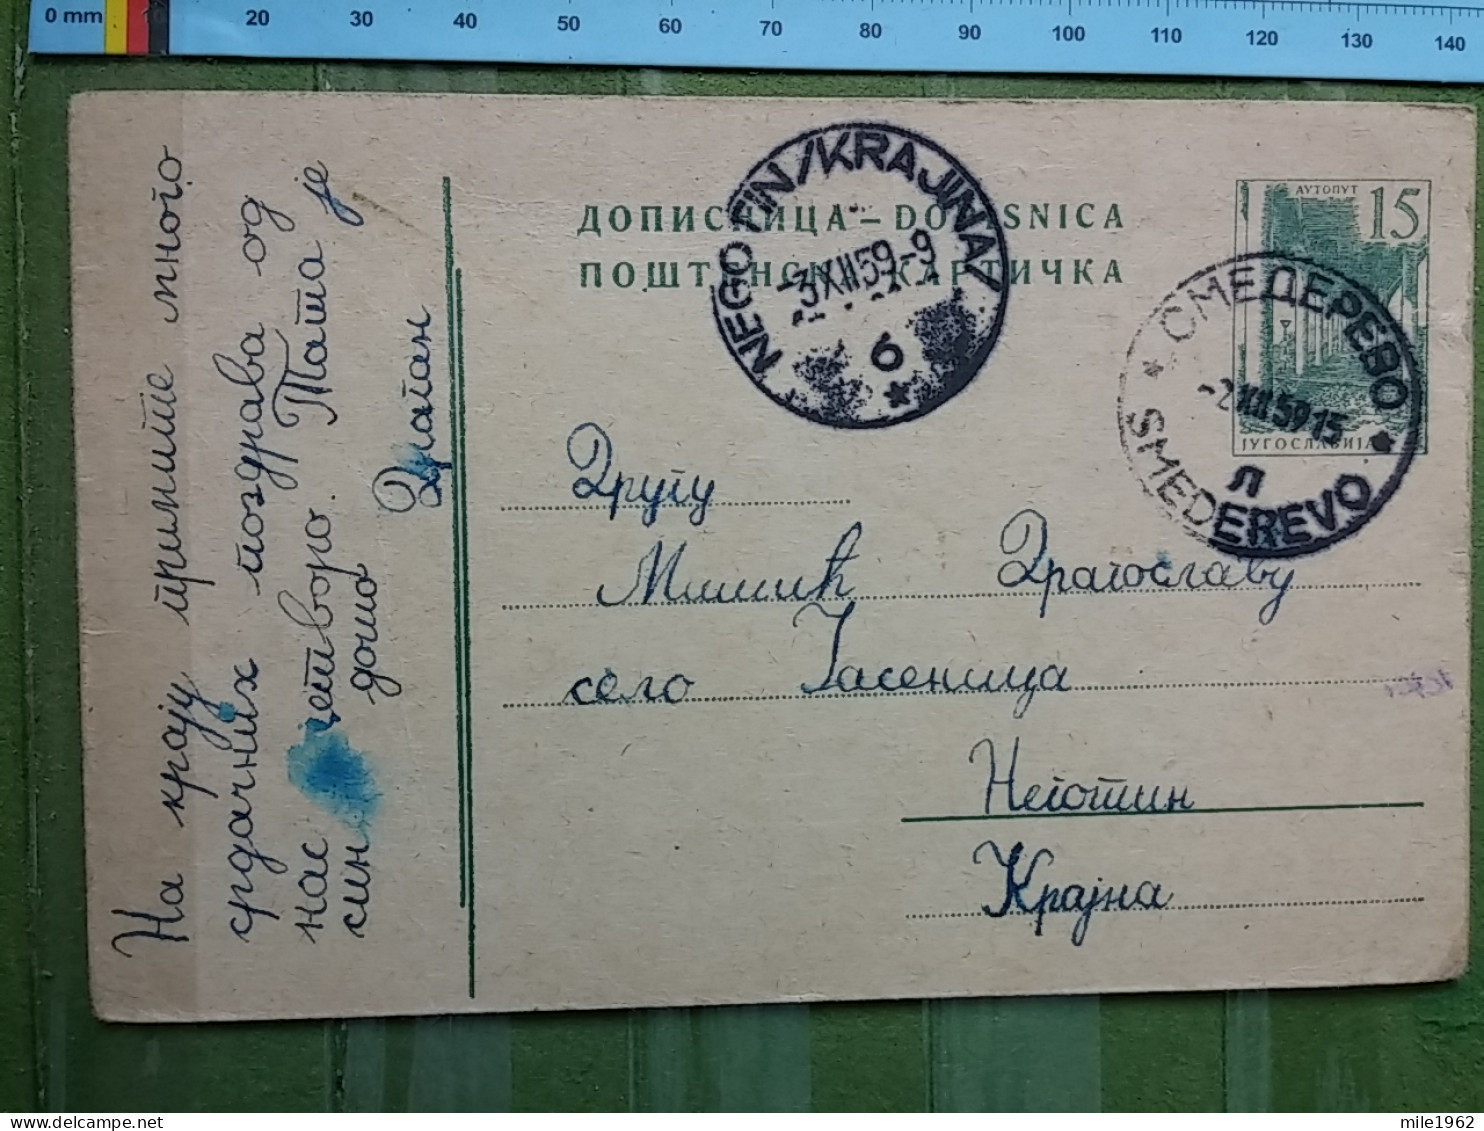 0 mm 20 30 40 50 60 70 80 90 100 110 120 130 140
ДОПИСНИЦА – DOPISNICA
ПОШТЕНСКА КАРТИЧКА
АУТОПУТ
15
ЈУГОСЛАВИЈА
NEGOTIN/KRAJINA/
-3XII59-9
6
СМЕДЕРЕВО
-2XII5915
Л
SMEDEREVO
На крају примите много
срдачних поздрава од
нас четворо. Тата је
син дошо
Драган
Другу
Мишић Драгославу
село Јасеница
Неготин
Крајна
mile1962